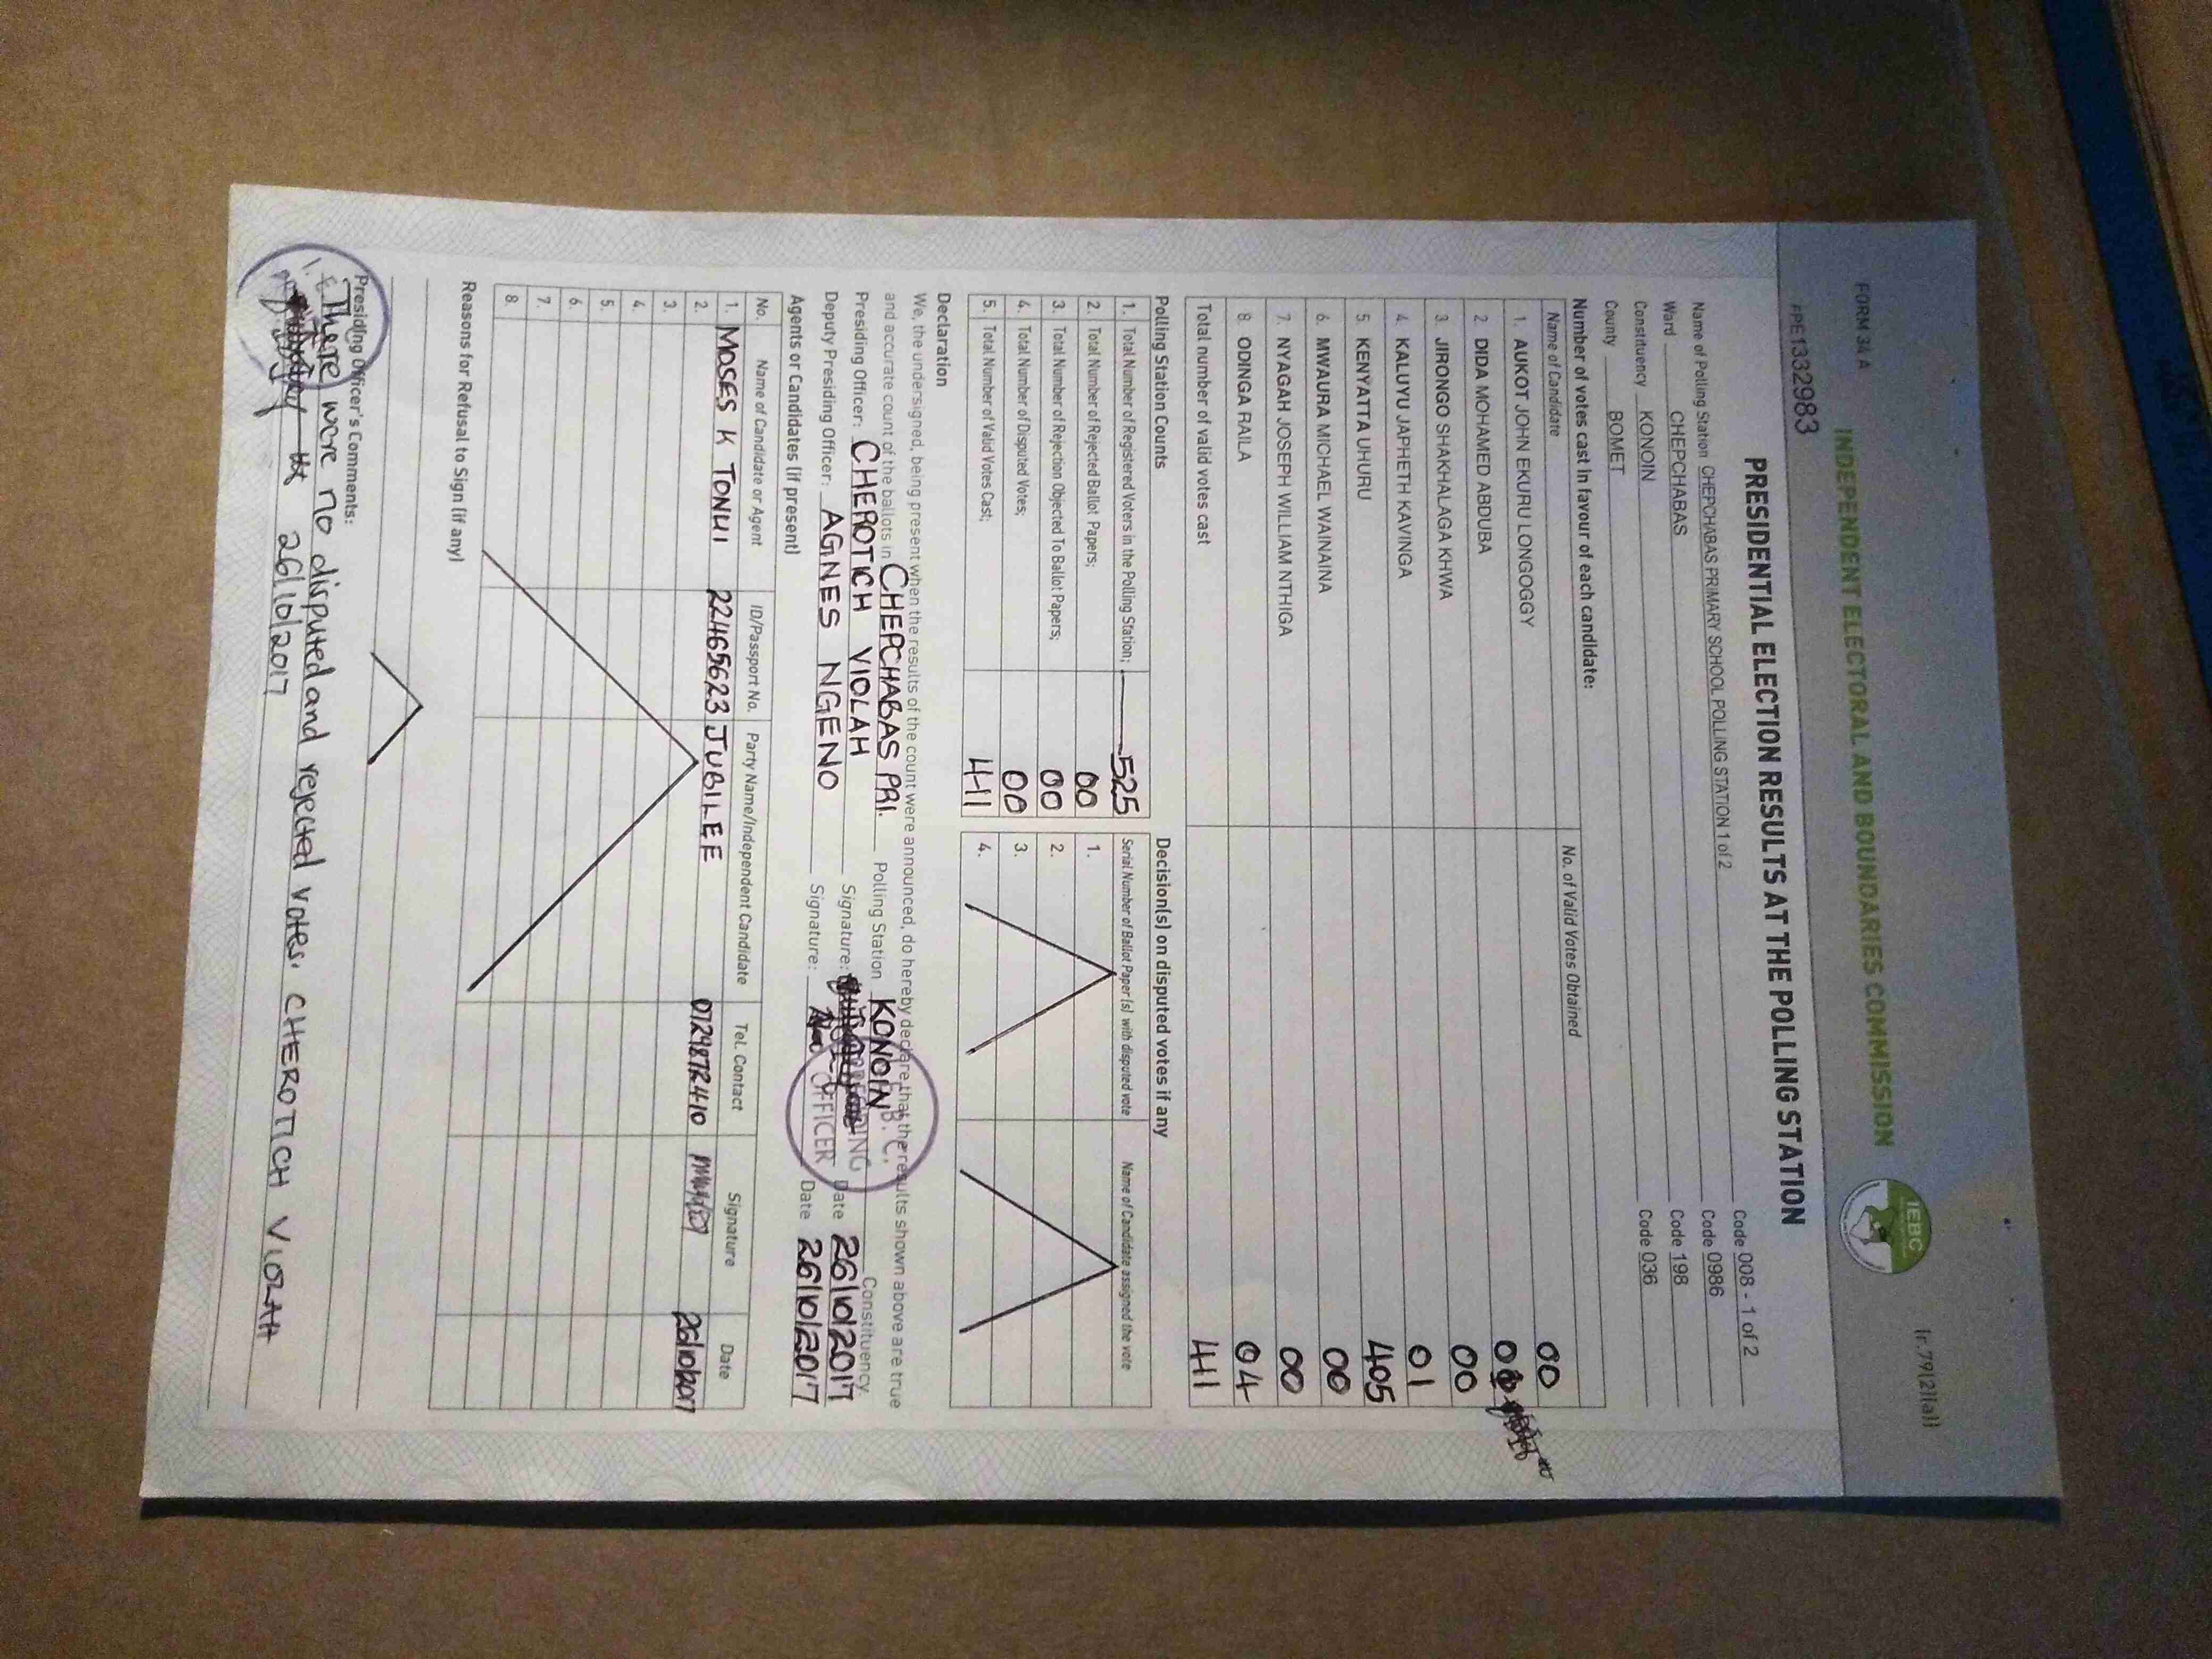 FORM 34 A
(r.79(2)(a))
INDEPENDENT ELECTORAL AND BOUNDARIES COMMISSION
IEBC
PRE1332983
PRESIDENTIAL ELECTION RESULTS AT THE POLLING STATION
Name of Polling Station CHEPCHABAS PRIMARY SCHOOL POLLING STATION 1 of 2 Code 008 - 1 of 2
Ward CHEPCHABAS Code 0986
Constituency KONOIN Code 198
County BOMET Code 036
Number of votes cast in favour of each candidate:
Name of Candidate No. of Valid Votes Obtained
1. AUKOT JOHN EKURU LONGOGGY 00
2. DIDA MOHAMED ABDUBA
3. JIRONGO SHAKHALAGA KHWA 00
4. KALUYU JAPHETH KAVINGA 01
5. KENYATTA UHURU 405
6. MWAURA MICHAEL WAINAINA 00
7. NYAGAH JOSEPH WILLIAM NTHIGA 00
8. ODINGA RAILA 04
Total number of valid votes cast 411
Polling Station Counts Decision(s) on disputed votes if any
1. Total Number of Registered Voters in the Polling Station; 525 Serial Number of Ballot Paper (s) with disputed vote Name of Candidate assigned the vote
2. Total Number of Rejected Ballot Papers; 00 1.
3. Total Number of Rejection Objected To Ballot Papers; 00 2.
4. Total Number of Disputed Votes; 00 3.
5. Total Number of Valid Votes Cast; 411 4.
Declaration
We, the undersigned, being present when the results of the count were announced, do hereby declare that the results shown above are true
and accurate count of the ballots in CHEPCHABAS PRI. Polling Station KONOIN Constituency.
Presiding Officer: CHEROTICH VIOLAH Signature: Date 26/10/2017
Deputy Presiding Officer: AGNES NGENO Signature: Date 26/10/2017
OFFICER
Agents or Candidates (if present)
No. Name of Candidate or Agent ID/Passport No. Party Name/Independent Candidate Tel. Contact Signature Date
1. MOSES K TONUI 22465623 JUBILEE 0729872410 26/10/2017
2.
3.
4.
5.
6.
7.
8.
Reasons for Refusal to Sign (if any)
Presiding Officer's Comments:
There were no disputed and rejected votes. CHEROTICH VIOLAH
26/10/2017